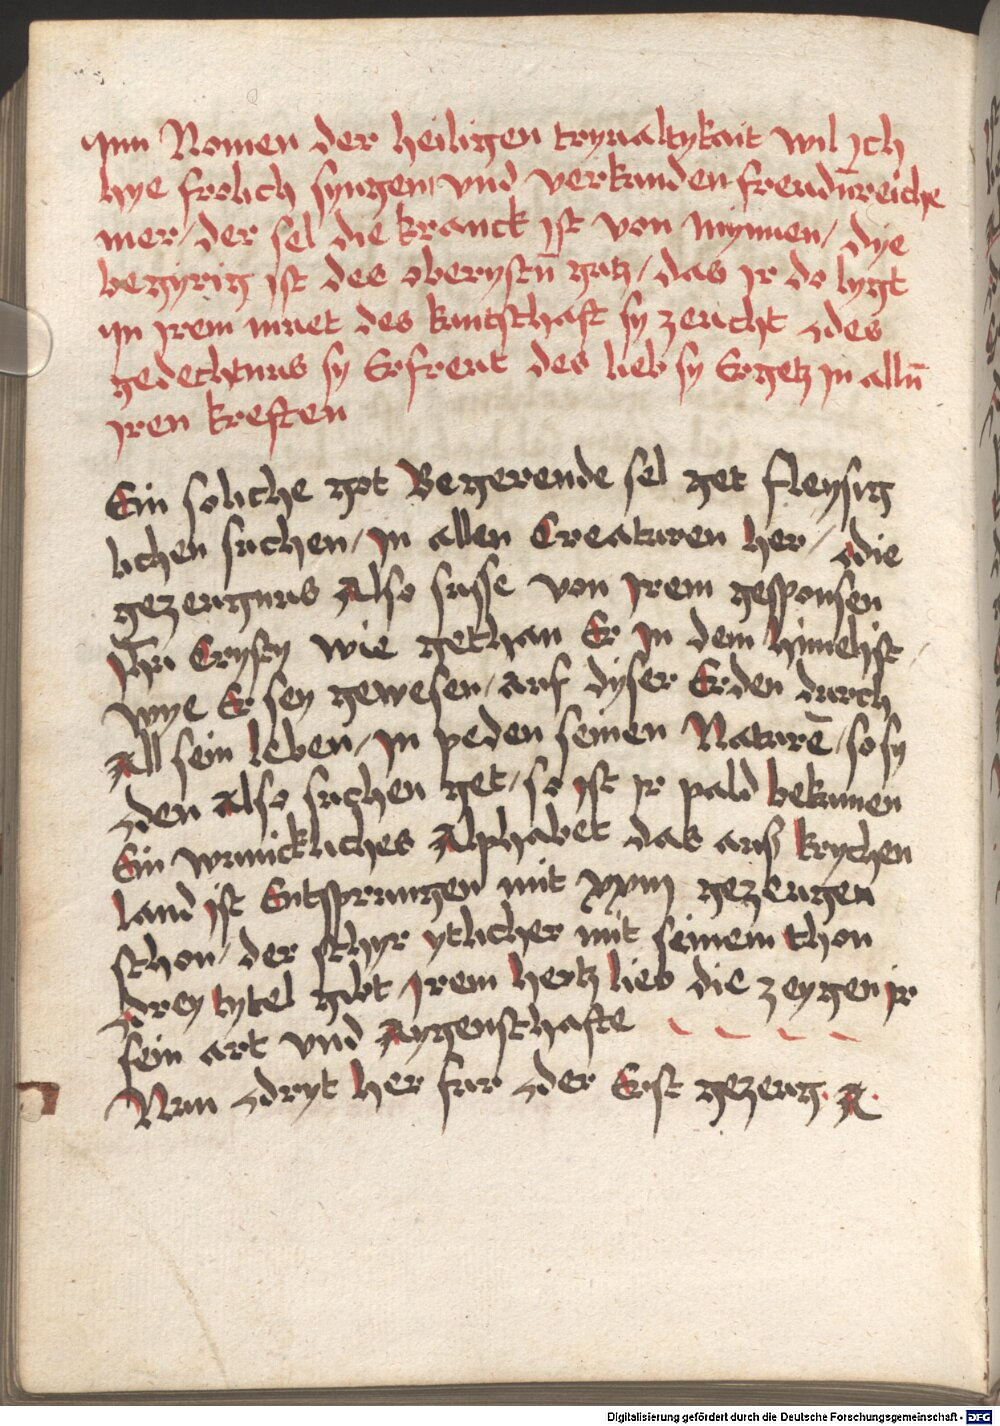 Inn Nomen der heiligen tryualtykait wil ich
hye frolich syngen vnd verkunden freudūreiche
mer / der sel die kranck ist von mynnen / dye
begyrig ist des oberystū gutz / das ir do lygt
in irem muet des kuntschaft sy zeucht des
gedechtnus sy Erfreut des lieb sy Ergetz in allū
iren kreften
Ein soliche got Begerende sel get fleysig
lichen suchen / in allen Creaturen her / die
gezeugnus Also susse von irem gesponsen
Jhū Crysty wie gethan Er in dem himel ist /
wye Er sey gewesen / auf dyser Erden durch
All sein leben / in peden seinen Naturē / so sy
den Also suchen get / so ist ir pald bekumen
Ein wunickliches Alphabet das auß krychen
land ist Entsprungen mit xxiij gezeugen
schon / der schyr ytlicher mit seinem thon
drey tytel gibt irem hertz lieb die zeygen ir
sein art vnd Aygenschafte
Nun dryt her fur der Erst gezeug . A .
Digitalisierung gefördert durch die Deutsche Forschungsgemeinschaft - DFG